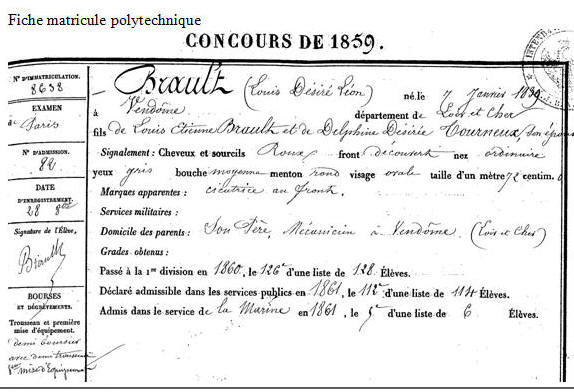 Fiche matricule polytechnique
CONCOURS DE 1859.
N° D'IMMATRICULATION.
8638
EXAMEN
de Paris
N° D'ADMISSION.
82
DATE
D'ENREGISTREMENT.
28 8bre
Signature de l'Élève,
Brault
BOURSES
ET DÉGRÈVEMENTS.
Trousseau et première
mise d'équipement.
demi boursier
avec demi trousseau
1ère mise d'Equipement
Brault (Louis Désiré Léon) né le 7 Janvier 1839
à Vendôme département de Loir et Cher
fils de Louis Etienne Brault et de Delphine Désirée Tourneux, son épouse
Signalement : Cheveux et sourcils Roux front découvert nez ordinaire
yeux gris bouche moyenne menton rond visage ovale taille d'un mètre 72 centim.
Marques apparentes : cicatrice au front.
Services militaires :
Domicile des parents : Son Père, Mécanicien à Vendôme (Loir et Cher)
Grades obtenus :
Passé à la 1re division en 1860, le 126e d'une liste de 128 Élèves.
Déclaré admissible dans les services publics en 1861, le 112e d'une liste de 114 Élèves.
Admis dans le service de la Marine en 1861, le 5e d'une liste de 6 Élèves.